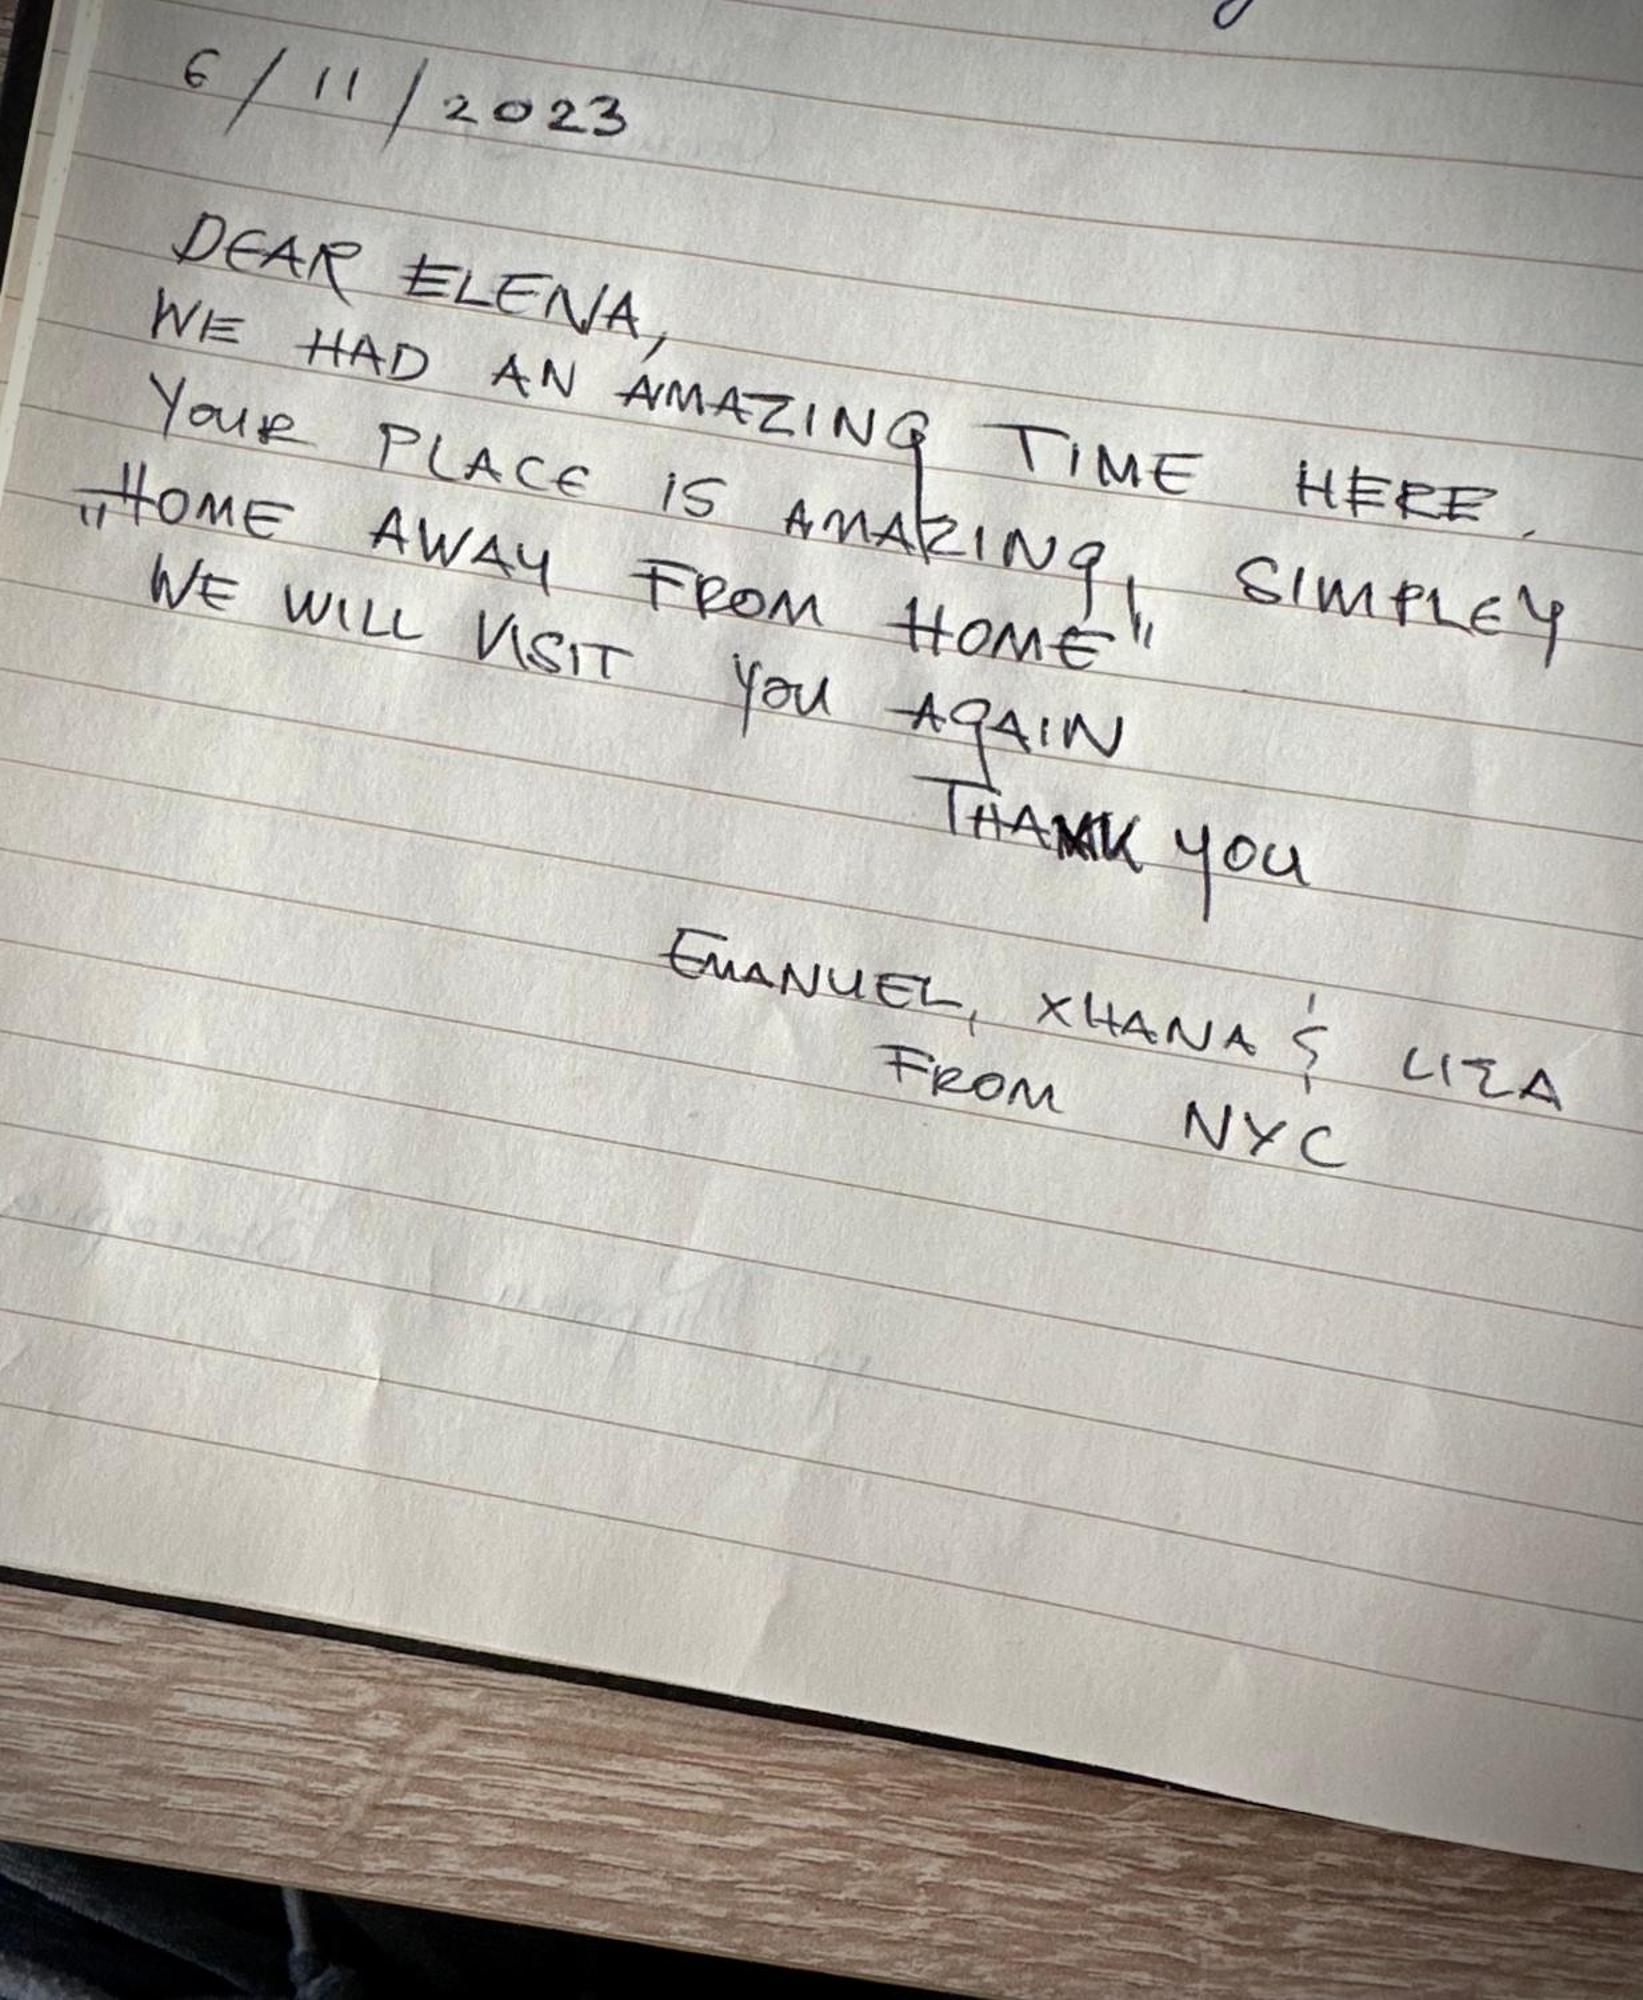 6/11/2023
DEAR ELENA,
WE HAD AN AMAZING TIME HERE.
YOUR PLACE IS AMAZING, SIMPLEY
„HOME AWAY FROM HOME"
WE WILL VISIT YOU AGAIN
THANK YOU
EMANUEL, XHANA & LIZA
FROM NYC